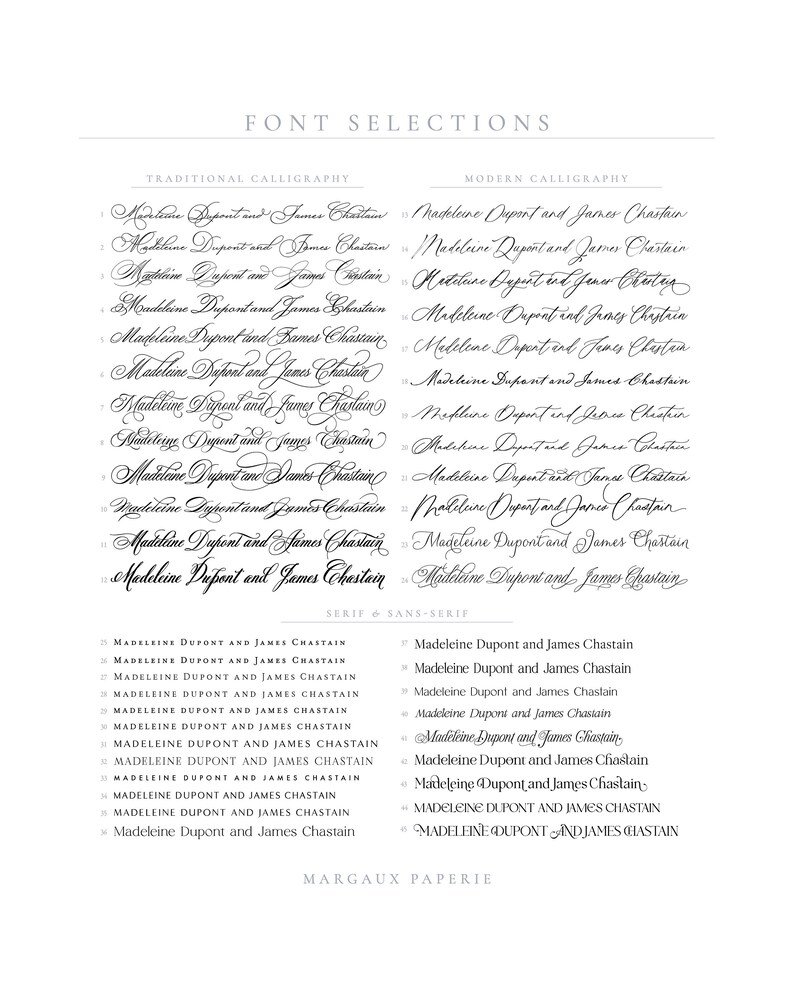 FONT SELECTIONS
TRADITIONAL CALLIGRAPHY
1 Madeleine Dupont and James Chastain
2 Madeleine Dupont and James Chastain
3 Madeleine Dupont and James Chastain
4 Madeleine Dupont and James Chastain
5 Madeleine Dupont and James Chastain
6 Madeleine Dupont and James Chastain
7 Madeleine Dupont and James Chastain
8 Madeleine Dupont and James Chastain
9 Madeleine Dupont and James Chastain
10 Madeleine Dupont and James Chastain
11 Madeleine Dupont and James Chastain
12 Madeleine Dupont and James Chastain
MODERN CALLIGRAPHY
13 Madeleine Dupont and James Chastain
14 Madeleine Dupont and James Chastain
15 Madeleine Dupont and James Chastain
16 Madeleine Dupont and James Chastain
17 Madeleine Dupont and James Chastain
18 Madeleine Dupont and James Chastain
19 Madeleine Dupont and James Chastain
20 Madeleine Dupont and James Chastain
21 Madeleine Dupont and James Chastain
22 Madeleine Dupont and James Chastain
23 Madeleine Dupont and James Chastain
24 Madeleine Dupont and James Chastain
SERIF & SANS-SERIF
25 MADELEINE DUPONT AND JAMES CHASTAIN
26 MADELEINE DUPONT AND JAMES CHASTAIN
27 MADELEINE DUPONT AND JAMES CHASTAIN
28 MADELEINE DUPONT AND JAMES CHASTAIN
29 MADELEINE DUPONT AND JAMES CHASTAIN
30 MADELEINE DUPONT AND JAMES CHASTAIN
31 MADELEINE DUPONT AND JAMES CHASTAIN
32 MADELEINE DUPONT AND JAMES CHASTAIN
33 MADELEINE DUPONT AND JAMES CHASTAIN
34 MADELEINE DUPONT AND JAMES CHASTAIN
35 MADELEINE DUPONT AND JAMES CHASTAIN
36 Madeleine Dupont and James Chastain
37 Madeleine Dupont and James Chastain
38 Madeleine Dupont and James Chastain
39 Madeleine Dupont and James Chastain
40 Madeleine Dupont and James Chastain
41 Madeleine Dupont and James Chastain
42 Madeleine Dupont and James Chastain
43 Madeleine Dupont and James Chastain
44 MADELEINE DUPONT AND JAMES CHASTAIN
45 MADELEINE DUPONT AND JAMES CHASTAIN
MARGAUX PAPERIE